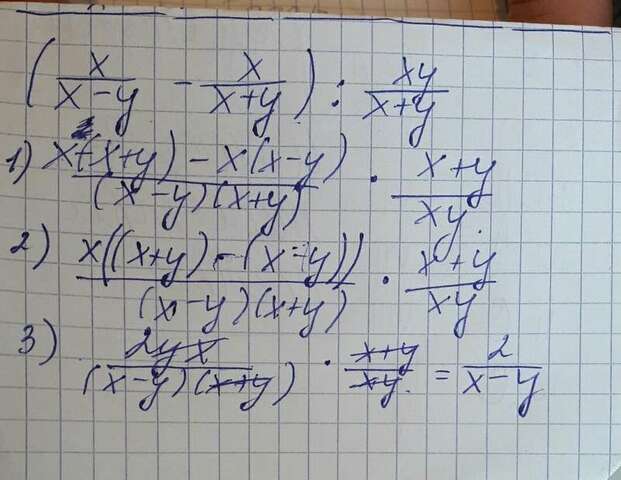 ( x/(x-y) - x/(x+y) ) : xy/(x+y)
1) x(x+y) - x(x-y) / (x-y)(x+y) · x+y / xy
2) x((x+y) - (x-y)) / (x-y)(x+y) · x+y / xy
3) 2yx / (x-y)(x+y) · x+y / xy = 2 / x-y